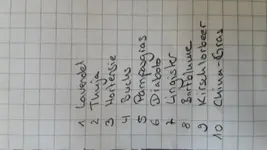 1 Lavendel
2 Thuja
3 Hortensie
4 Buchs
5 Pampasgras
6 Diabolo
7 Linguster
8
9 Kirschlorbeer
10 China-Gras